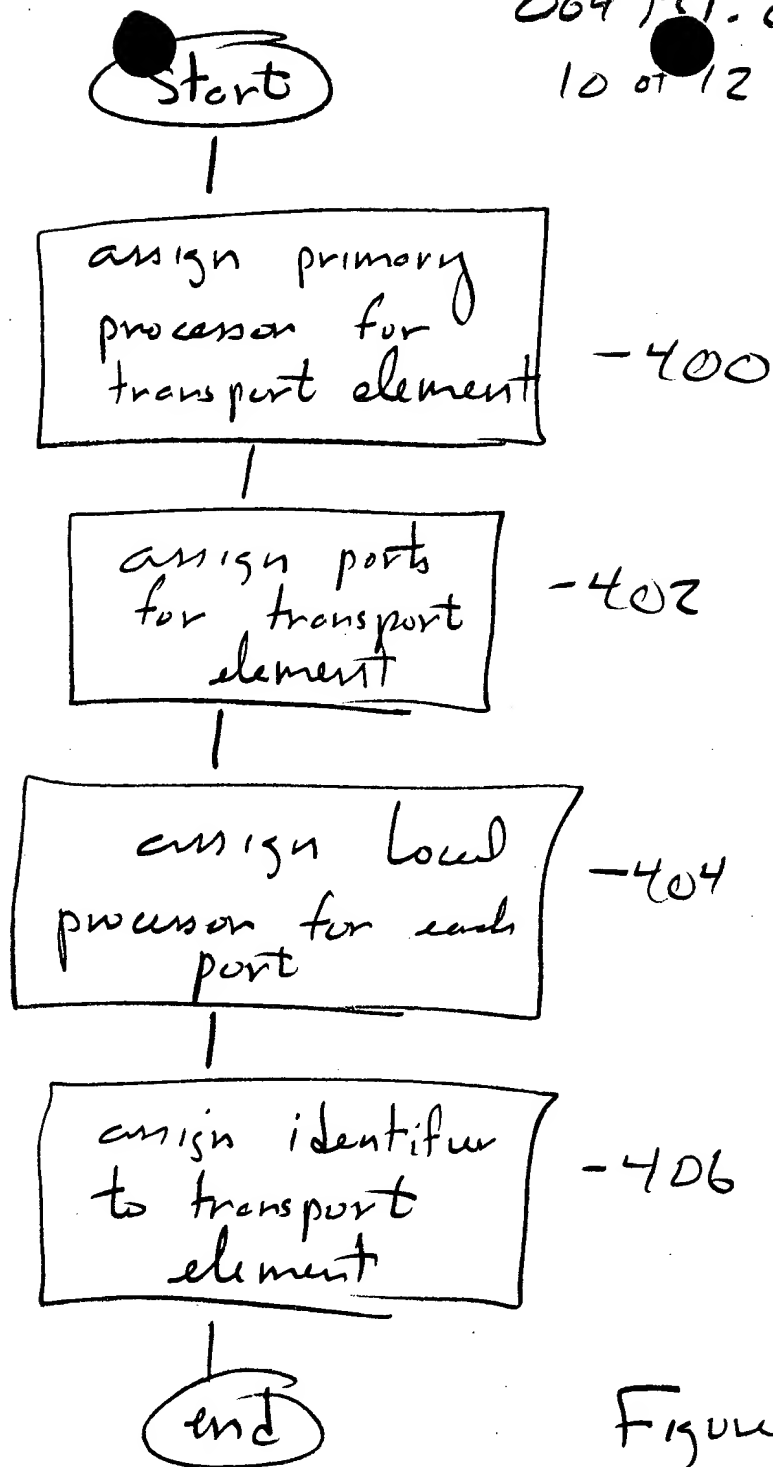 start
10 of 12
assign primary
processor for
transport element
-400
assign ports
for transport
element
-402
assign local
processor for each
port
-404
assign identifier
to transport
element
-406
end
Figure